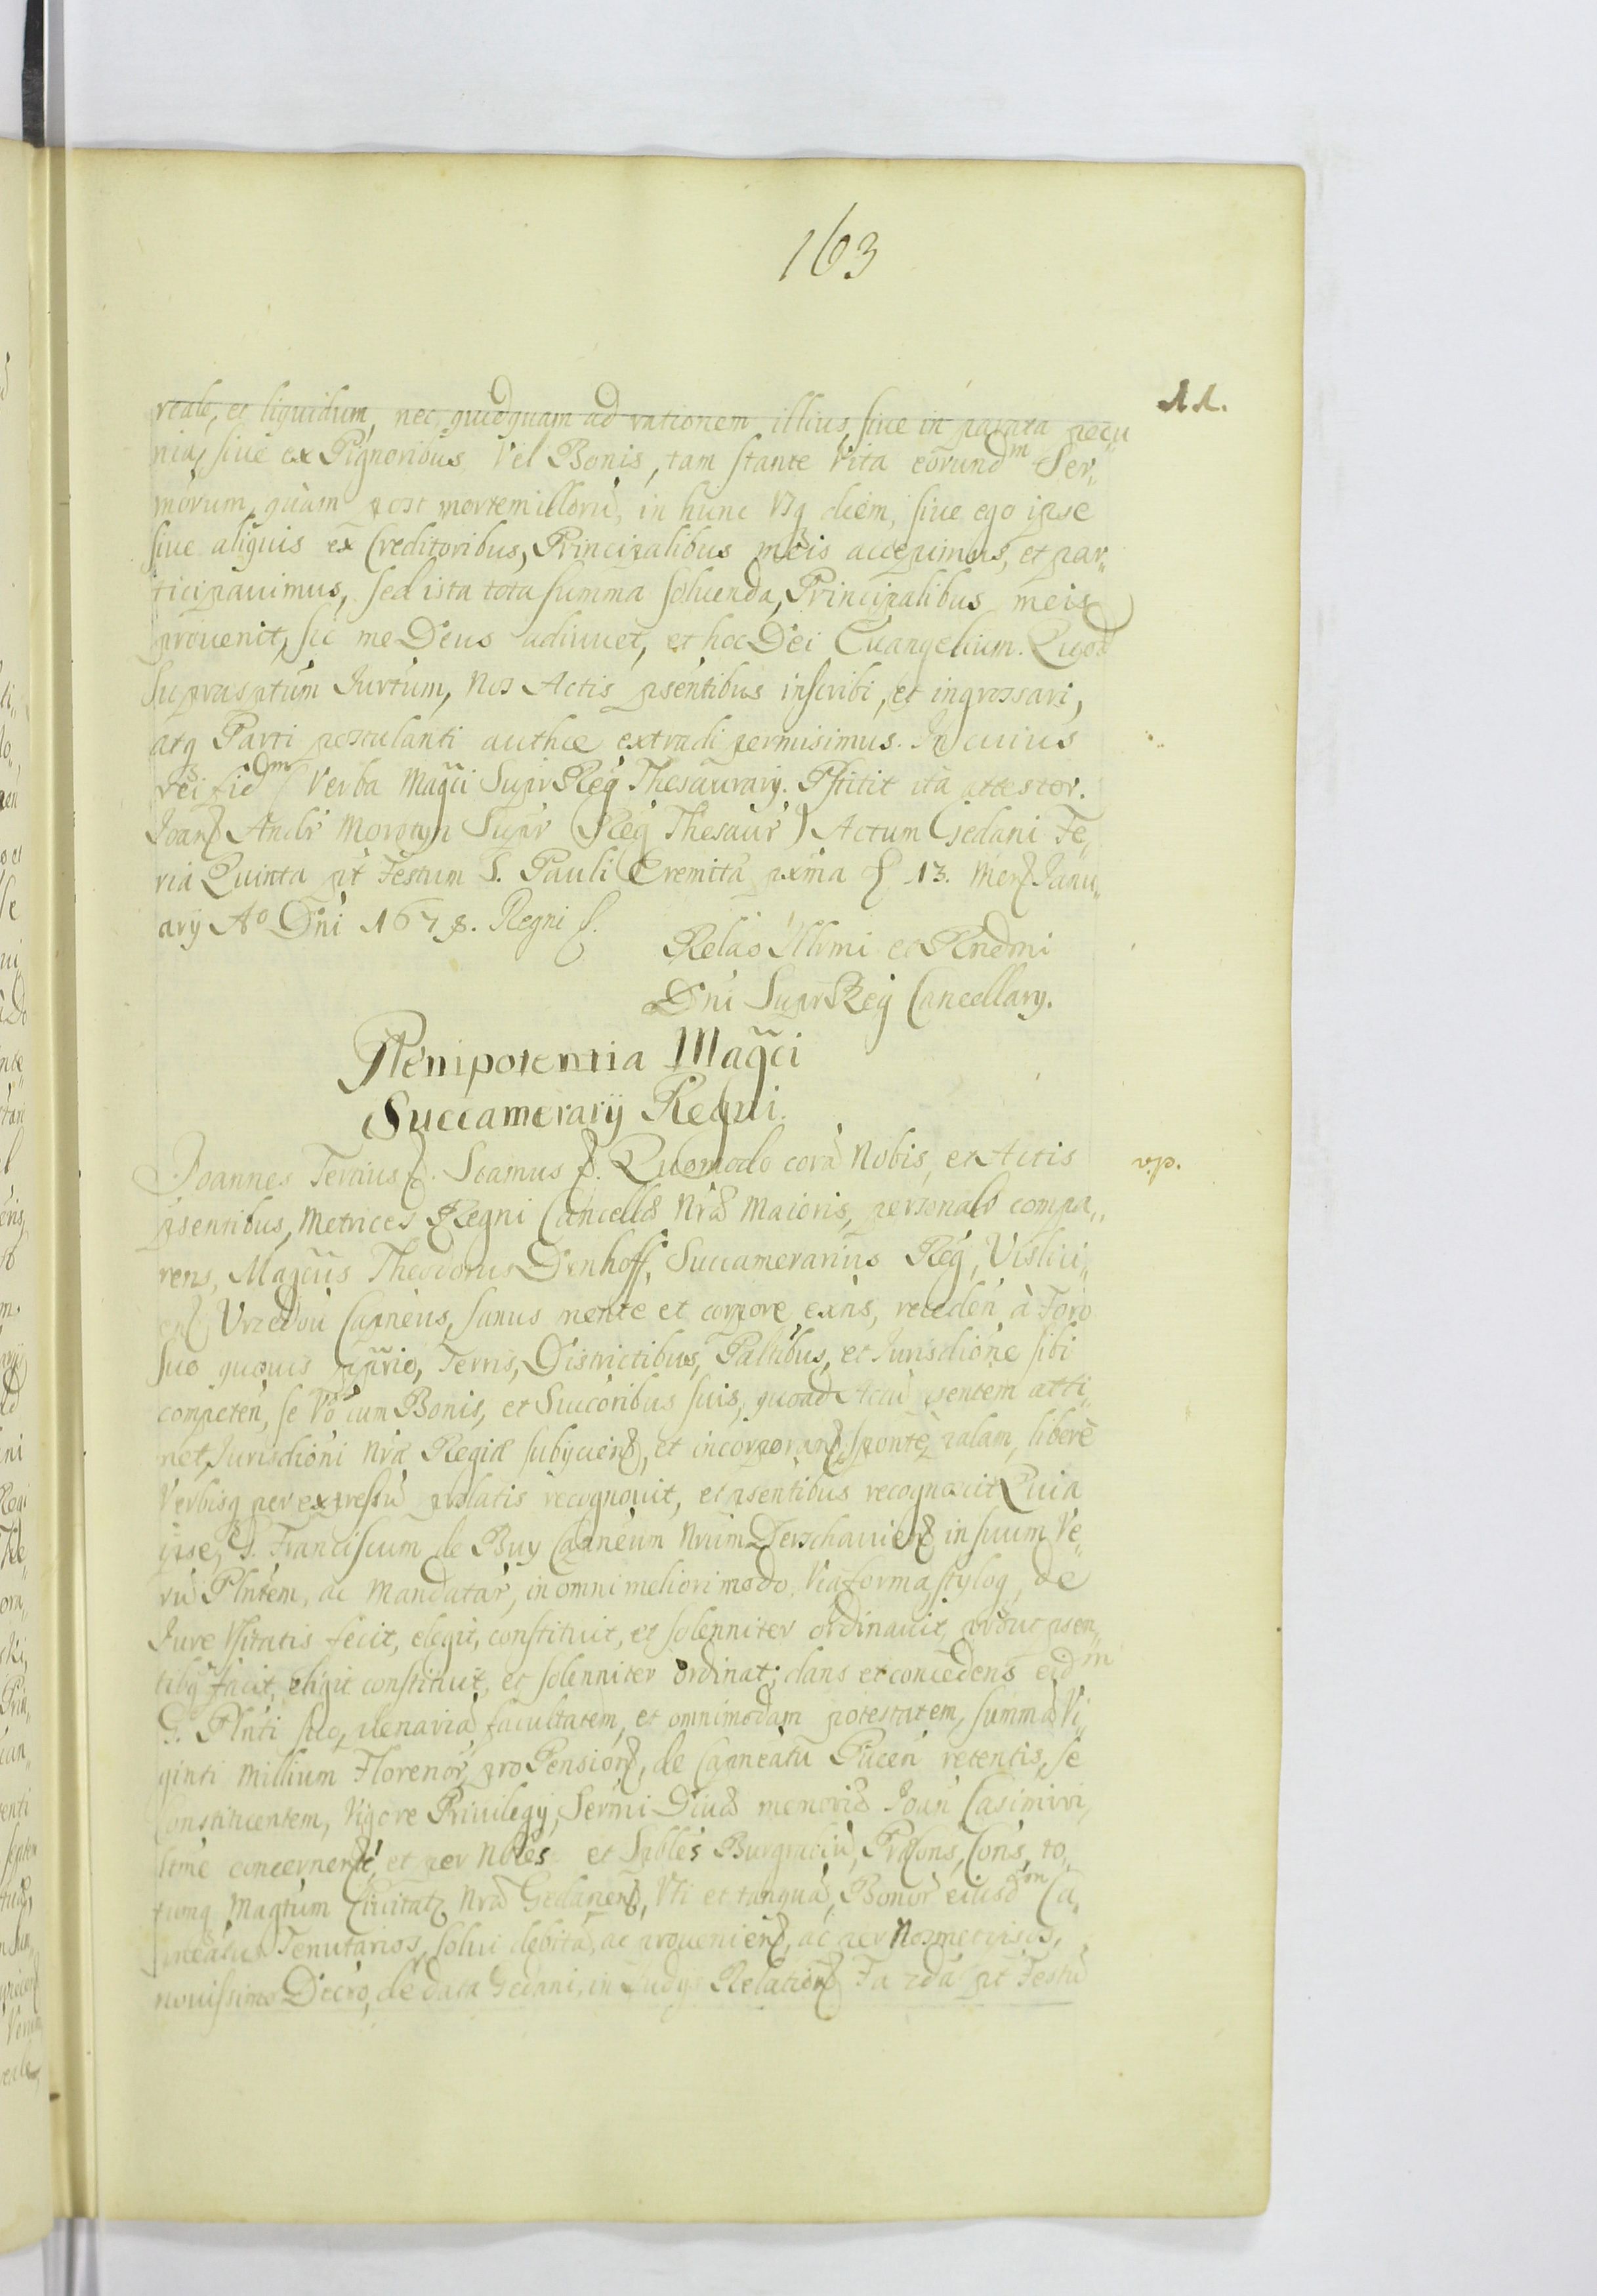 163
reale, et liquidum, nec quidquam ad rationem illius, siue in parata pecu„
nia, siue ex Pignoribus Vel Bonis, tam stante Vita eorundm Ser„
morum, quam post mortem illorū, in hunc Vsq diem, siue ego ipse
siue aliquis ex Creditoribus, Principalibus meis accepimus, et par„
ticipauimus, sed ista tota summa soluenda, Principalibus meis
prouenit, sic me Deus adiuuet, et hoc Dei Euangelium. Quod
suprasptum Jurtum, Nos Actis psentibus inscribi, et ingrossari,
atq Parti postulanti authce extradi permisimus. In cuius
rei fidm Verba Magci Supr Reg Thesaurary. Pstitit ita attestor.
Joan Andr Morstyn Supr Reg Thesaur) Actum Gedani Fe„
ria Quinta pt Festum S. Pauli Eremitæ pxma 13. Mens Janu„
ary Ao Dni 1678. Regni
Relao Illrmi et Rndmi
Dni Supr Reg Cancellary.
Plenipotentia Magci
Succamerarij Regni.
Joannes Tertius. Scamus. Quomodo corā Nobis, et Actis
psentibus, Metrices Regni Cancellæ Nræ Maioris, personalr compa„
rens, Magcus Theodorus Denhoff, Succamerarius Reg, Vislici„
en Vrzedou Capneus, sanus mente et corpore exns, receden à Foro
suo quouis pprio, Terris, Districtibus, Paltibus, et Jurisdione sibi
competen, se Vo cum Bonis, et Succoribus suis, quoad Actū psentem atti„
net, Jurisdioni Nræ Regiæ subijciens, et incorporans, sponte, palam, liberè
Verbisq per expressū prolatis recognouit, et psentibus recognoscit Quia
ipse, G. Franciscum de Buy Capneum Nrum Derschauien in suum Ve„
rū Plntem, ac Mandatar, in omni meliori modo, Via forma styloq, de
Jure Vsitatis fecit, elegit, constituit, et solenniter ordinauit, prout psen„
tibq facit, eligit constituit, et solenniter ordinat; dans et concedens eidm
G. Plnti suo, plenariā facultatem, et omnimodam potestatem, summā Vi„
ginti Millium Florenor, pro Pension, de Capneatu Pucen retentis, se
Constituentem, Vigore Priuilegy, Sermi Diuæ memoriæ Joan Casimiri,
ltme concernen, et per Nbles et Spbles Burgrabiū, PrCons, Cons, to„
tumq Magtum Ciuitat Nræ Gedanen, Vti et tanquā, Bonor eiusdm Ca„
pneatus Tenutarios, solui debitā, ac prouenien, ac per Nosmetipsos,
nouissimo Decro, de data Gedani, in Judys Relation Fa 2da pt Festū